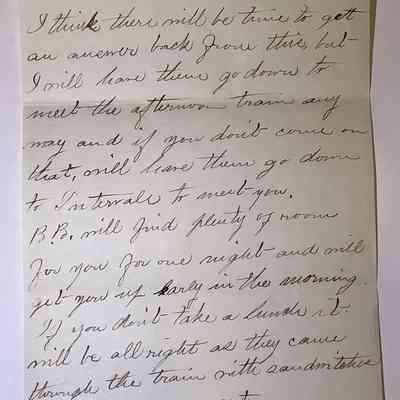 I think there will be time to get
an answer back from this, but
I will have them go down to
meet the afternoon train any
way and if you don't come on
that, will have them go down
to Intervale to meet you.
B.B. will find plenty of room
for you for one night and will
get you up early in the morning.
If you don't take a lunch it
will be all right as they came
through the train with sandwitches